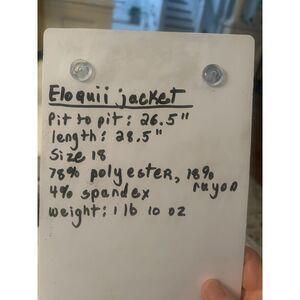 Eloquii jacket
Pit to pit: 26.5"
length: 28.5"
Size 18
78% polyester, 18%
4% spandex rayon
weight: 1 lb 10 oz